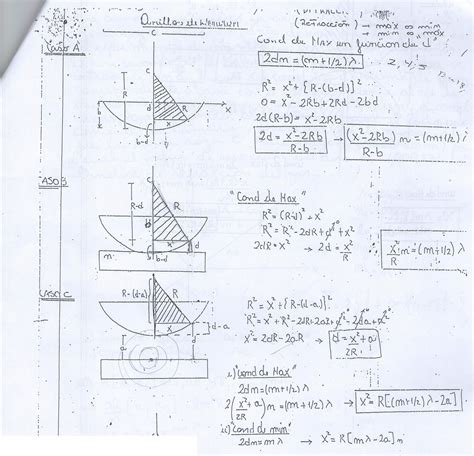 Anillos de Newton
(Refracción) → max os mim
→ mim o, max
Caso A
Cond de Max en funcion de d
2dm = (m+1/2)λ
R² = x² + [R-(b-d)]²
0 = x² - 2Rb + 2Rd - 2bd
2d(R-b) = x² - 2Rb
2d = x² - 2Rb / R-b → (x² - 2Rb) n / R-b = (m+1/2)λ
C
R
d
x
X
b-d
ASO B
"Cond de Max"
R² = (R-d)² + x²
R² = R² - 2dR + d² + x²
2dR = x² → 2d = x²/R
x²/R n = (m+1/2)λ
C
R-d
R
x
d
n
b-d
CASO C
R² = x² + {R-(d-a)}²
R² = x² + R² - 2dR + 2aR + d² - 2da + a²
x² = 2dR - 2aR → d = x²/2R + a
R-(d-a)
R
x
d-a
a
i) "Cond de Max"
2dm = (m+1/2)λ
2(x²/2R + a)n = (m+1/2)λ → x² = R[(m+1/2)λ - 2a]
ii) "Cond de mim"
2dm = mλ → x² = R[mλ - 2a]n